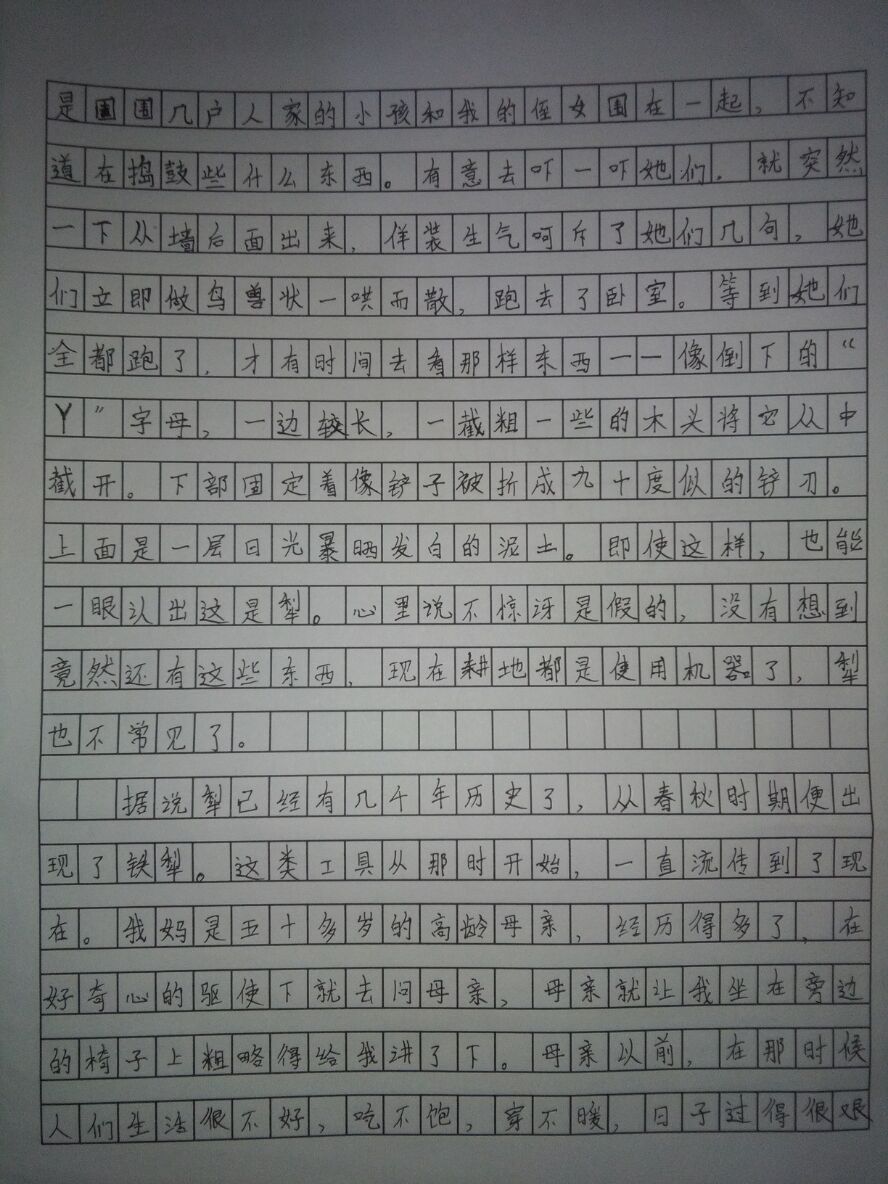 是围围几户人家的小孩和我的侄女围在一起，不知
道在捣鼓些什么东西。有意去吓一吓她们，就突然
一下从墙后面出来，佯装生气呵斥了她们几句，她
们立即做鸟兽状一哄而散，跑去了卧室。等到她们
全都跑了，才有时间去看那样东西——像倒下的“
Y”字母，一边较长，一截粗一些的木头将它从中
截开。下部固定着像铲子被折成九十度似的铲刃。
上面是一层日光暴晒发白的泥土。即使这样，也能
一眼认出这是犁。心里说不惊讶是假的，没有想到
竟然还有这些东西，现在耕地都是使用机器了，犁
也不常见了。
据说犁已经有几千年历史了，从春秋时期便出
现了铁犁。这类工具从那时开始，一直流传到了现
在。我妈是五十多岁的高龄母亲，经历得多了，在
好奇心的驱使下就去问母亲，母亲就让我坐在旁边
的椅子上粗略得给我讲了下。母亲以前，在那时候
人们生活很不好，吃不饱，穿不暖，日子过得很艰